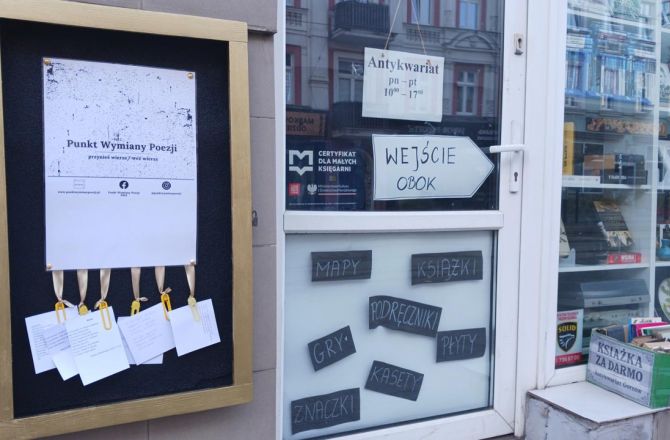 Punkt Wymiany Poezji
przynieś wiersz / weź wiersz
Punkt Wymiany Poezji
Antykwariat
pn - pt
10⁰⁰ - 17⁰⁰
CERTYFIKAT
DLA MAŁYCH
KSIĘGARNI
WEJŚCIE
OBOK
MAPY
KSIĄŻKI
PODRĘCZNIKI
GRY
PŁYTY
KASETY
ZNACZKI
SOLID
KSIĄŻKA
ZA DARMO
Antykwariat Gorzów